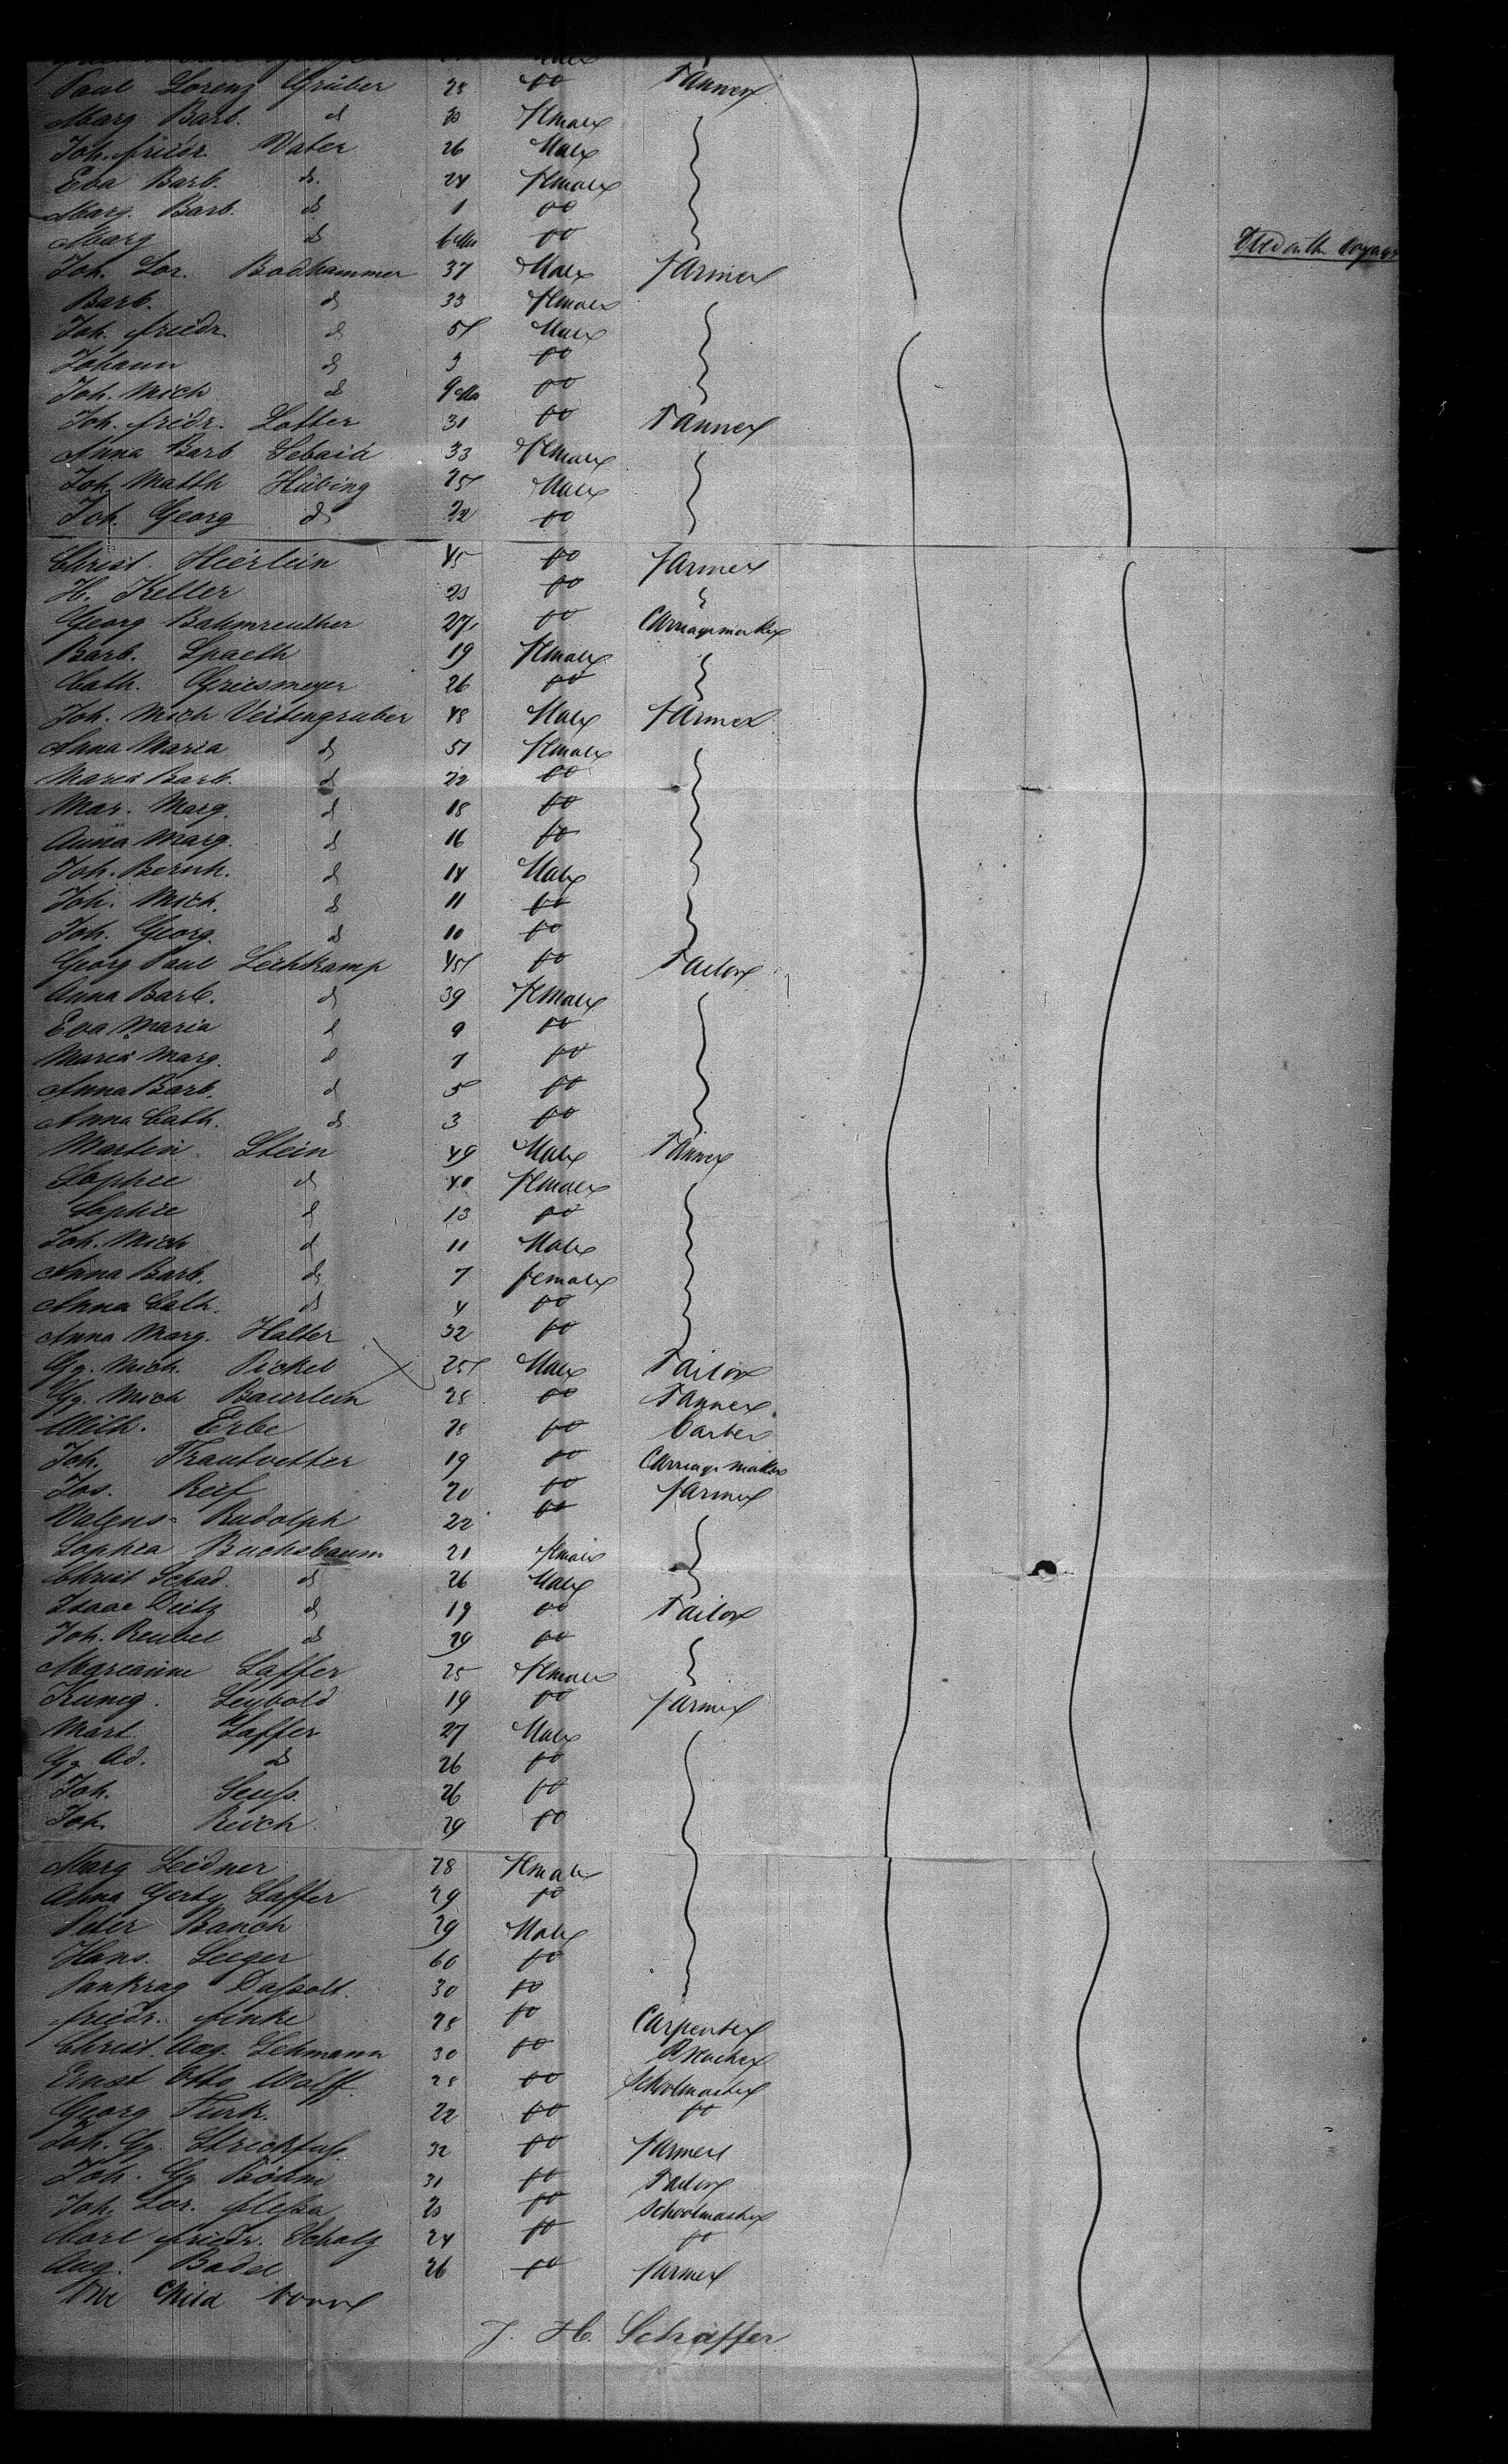 Paul Lorenz Grüber 28 do Tanner
Marg Barb. d 30 Female
Joh. friedr. Vater 26 Male
Eva Barb. d. 24 Female
Marg. Barb. d 1 do
Marg d 6 Mo do Died on the voyage
Joh. Lor. Bodhammer 37 Male Farmer
Barb. d 33 Female
Joh. friedr. d 5 Male
Johann d 3 do
Joh. Mich d 9 Mo do
Joh. fridr. Lotter 31 do Tanner
Anna Barb 33 Female
Joh. Matth Hübing 25 Male
Joh. Georg d 22 do
Christ. Heerlein 45 do Farmer
H. Keller 23 do
Georg Bahmreuther 27 do Carriagemaker
Barb. Spaeth 19 Female
Cath. Griesmeyer 26 do
Joh. Mich Veitengruber 48 Male Farmer
Anna Maria d 51 Female
Maria Barb. d 22 do
Mar. Marg. d 18 do
Anna Marg. d 16 do
Joh. Bernh. d 14 Male
Joh. Mich. d 11 do
Joh. Georg. d 10 do
Georg Paul 45 do Tailor
Anna Barb. d 39 Female
Eva Maria d 9 do
Maria Marg. d 7 do
Anna Barb. d 5 do
Anna Cath. d 3 do
Martin Stein 49 Male Tanner
Sophie d 40 Female
Sophie d 13 do
Joh. Mich d 11 Male
Anna Barb. d 7 female
Anna Cath. d 4 do
Anna Marg. Halter 32 do
Gg. Mich. Pickel 25 Male Tailor
Gg. Mich Baierlein 28 do Tanner
Wilh. Erbe 28 do barber
Joh. Trautvetter 19 do Carriage maker
Jos. Reif 20 do farmer
Valens Rudolph 22 do
Sophia Buchsbaum 21 female
Christ Schad d 26 Male
Isaac Deitz d 19 do Tailor
Joh. Reubel d 29 do
Marianne Laffer 25 Female
Kuneg. Leybold 19 do farmer
Mart. Laffer 27 Male
Gg Ad. d 26 do
Joh. Seuß 26 do
Joh. Reich 29 do
Marg Leidner 28 Female
Anna Laffer 29 do
Peter Bauch 29 Male
Hans. Seeger 60 do
Pankraz 30 do
friedr. finke 28 do Carpenter
Christ. Aug. Lehmann 30 do
Ernst Otto Wolff 28 do Schoolmaster
Georg Turk. 22 do do
Joh. Gg. Streckfuß 32 do farmer
Joh. Gg Böhm 31 do Tailor
Joh. Lor. fleßa 23 do Schoolmaster
Carl friedr. Scholz 24 do do
Aug. Badel 26 do farmer
One Child born
J. H. Schäffer